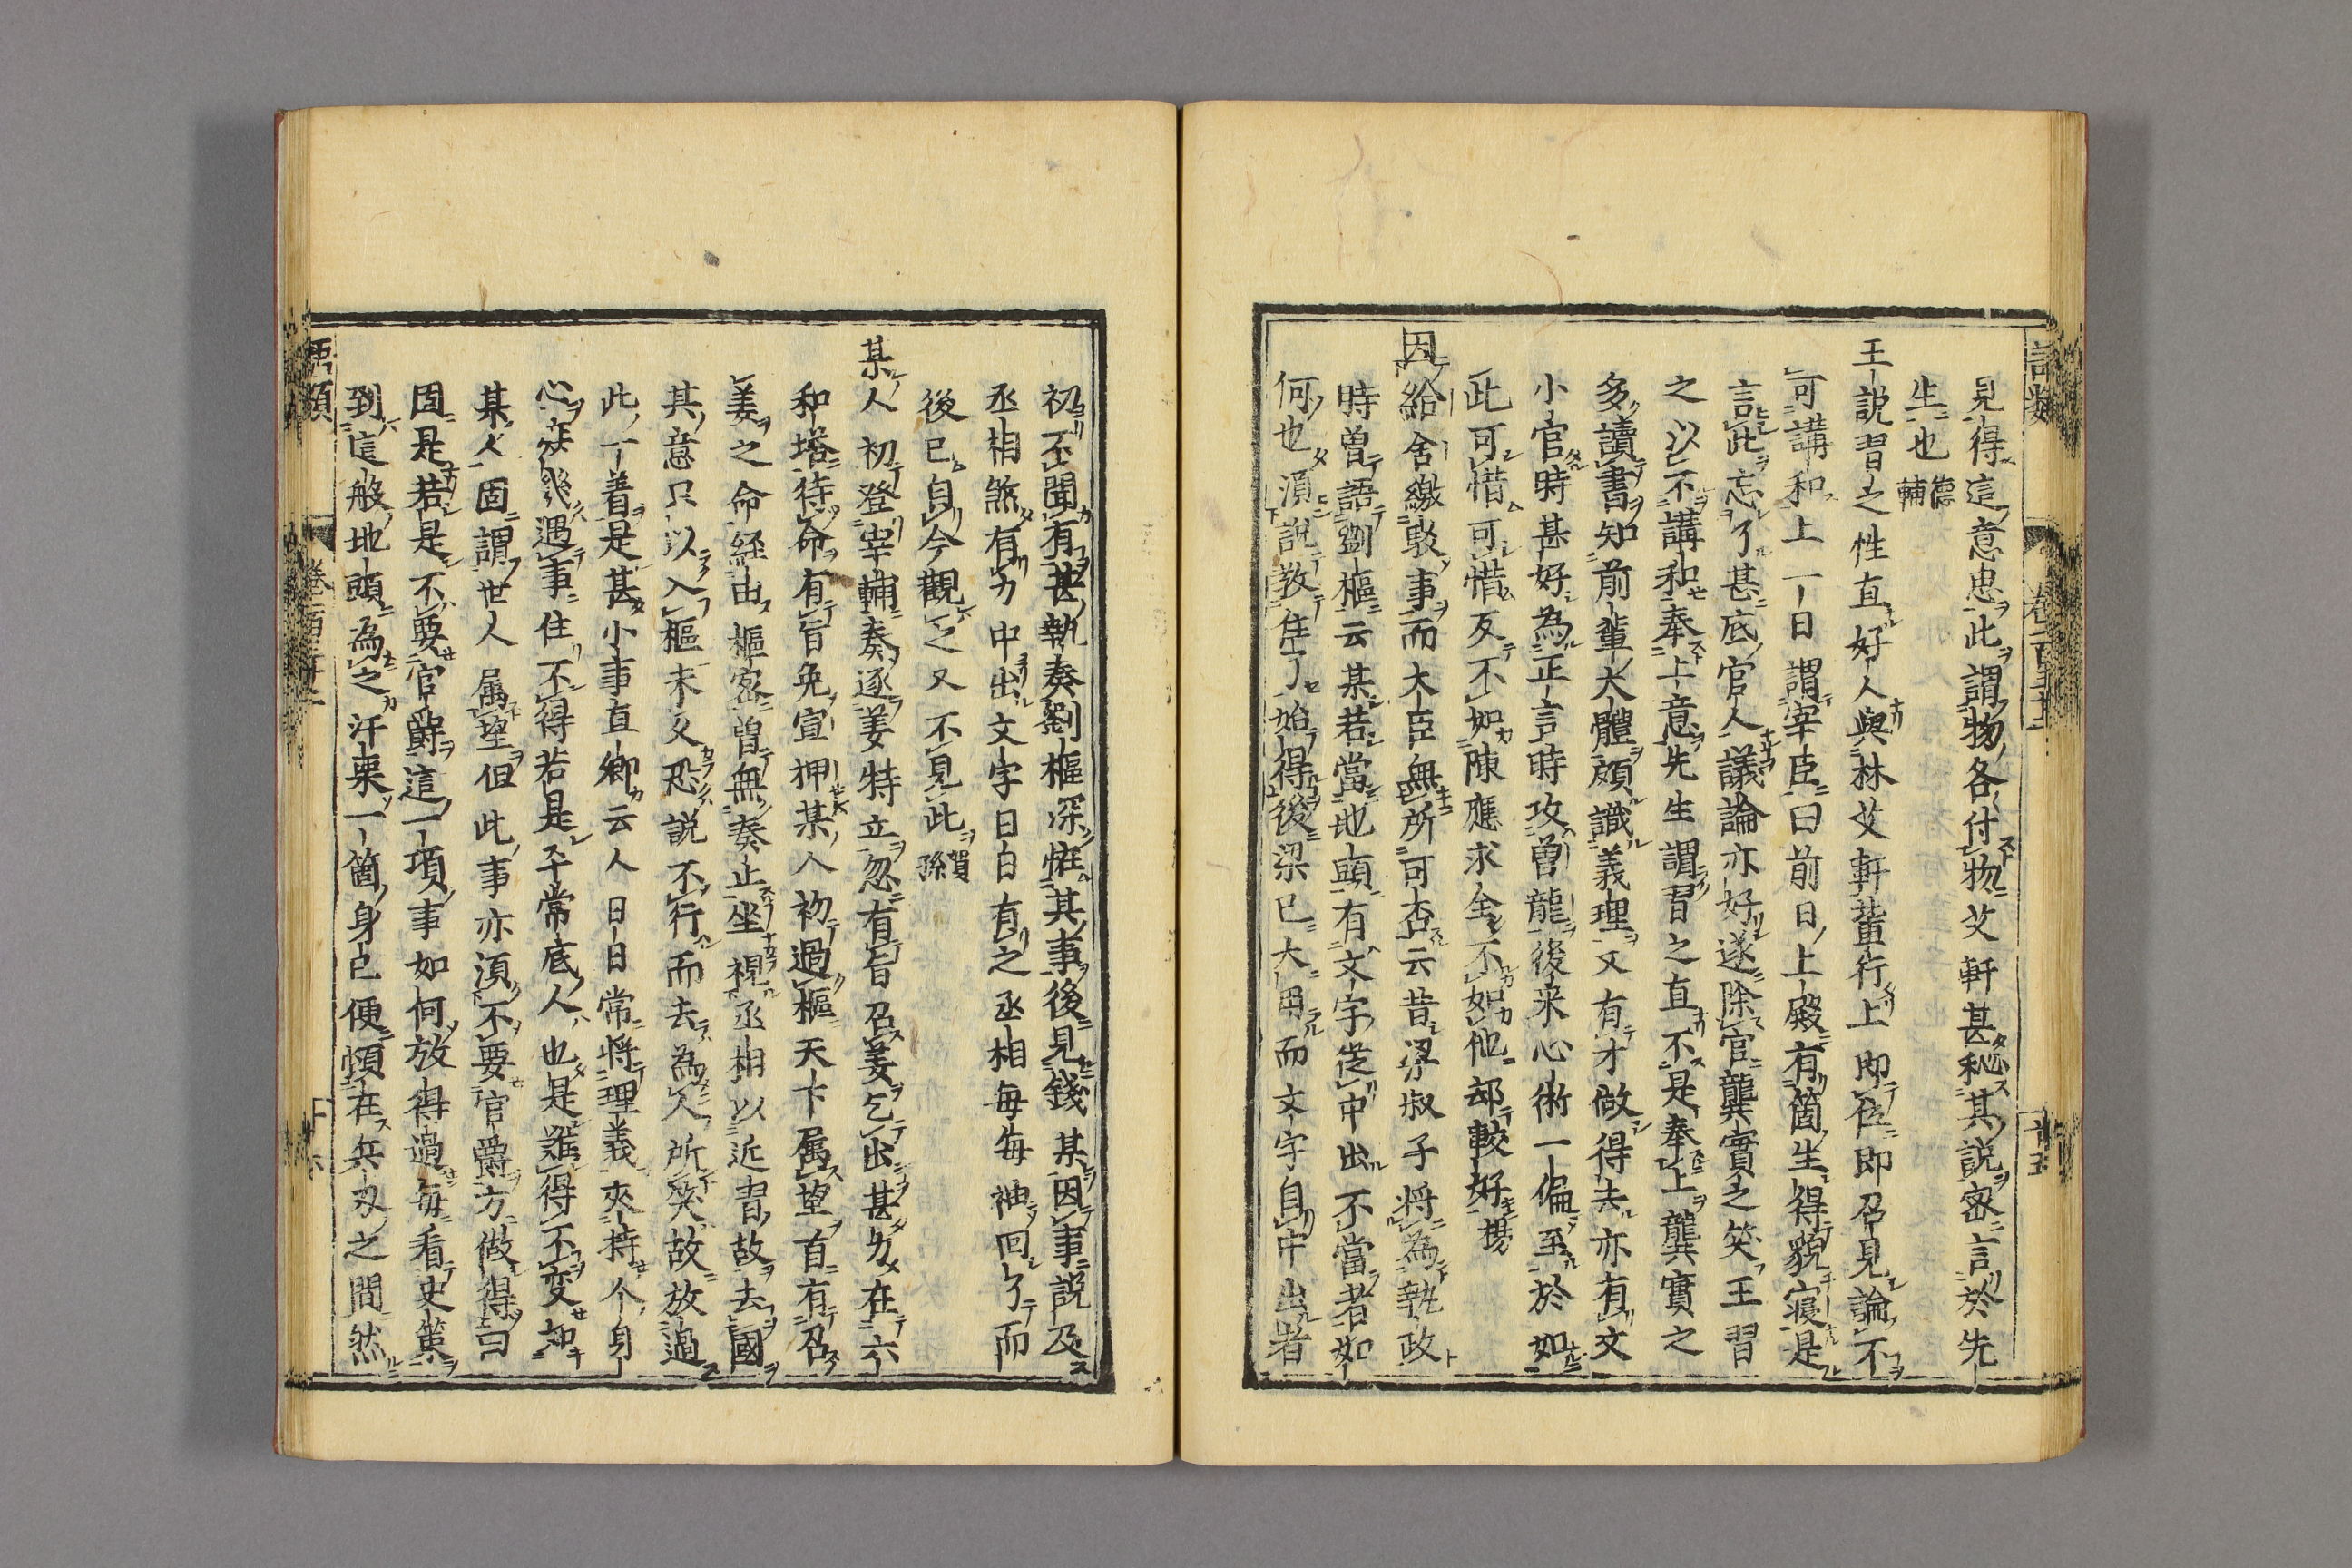 語類 卷一百三十二 十五
見得這意忠此謂物各付物艾軒甚秘其說密言於先
生也德輔
王說習之性直好人與林艾軒輩行上即位即召見論不
可講和上一日謂宰臣曰前日上殿有箇生得貌寢是
言此忘了甚底官人議論亦好遂除官龔實之笑王習
之以不講和奉上意先生謂習之直不是奉上龔實之
多讀書知前輩大體頗識義理又有才做得去亦有文
小官時甚好為正言時攻曽龍後来心術一偏至於如
此可惜可惜反不如陳應求全不如他却較好揚
因給舍繳駁事而大臣無所可否云昔沼叔子将為執政
時曽語劉樞云某若當地頭有文字從中出不當者如
何也湏說教住了始得後梁已大用而文字自中出者
初不聞有甚執奏劉樞深恠其事後見錢某因事說及
丞相煞有力中出文字日白有之丞相每每袖回了而
後已自今觀之又不見此賀孫
某人初登宰輔奏逐姜特立忽有旨召姜乞出甚力在六
和塔待命有旨免宣押某人初過樞天下属望首有召
姜之命経由樞密曽無奏止坐視丞相以近習故去國
其意只以入樞未久恐說不行而去為人所笑故放過
此一着是甚小事直卿云人日日常将理義夾持个身
心庶幾遇事住不得若是平常底人也是難得不変如
某人固謂世人属望但此事亦湏不要官爵方做得曰
固是若是不要官爵這一項事如何放得過每看史策
到這般地頭為之汗栗一箇身已便頓在兵刃之間然
語類 卷百三十二